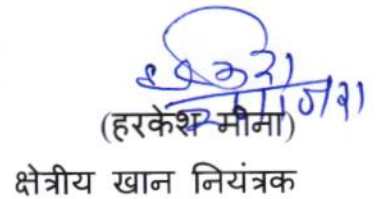 (हरकेश मीना)
क्षेत्रीय खान नियंत्रक